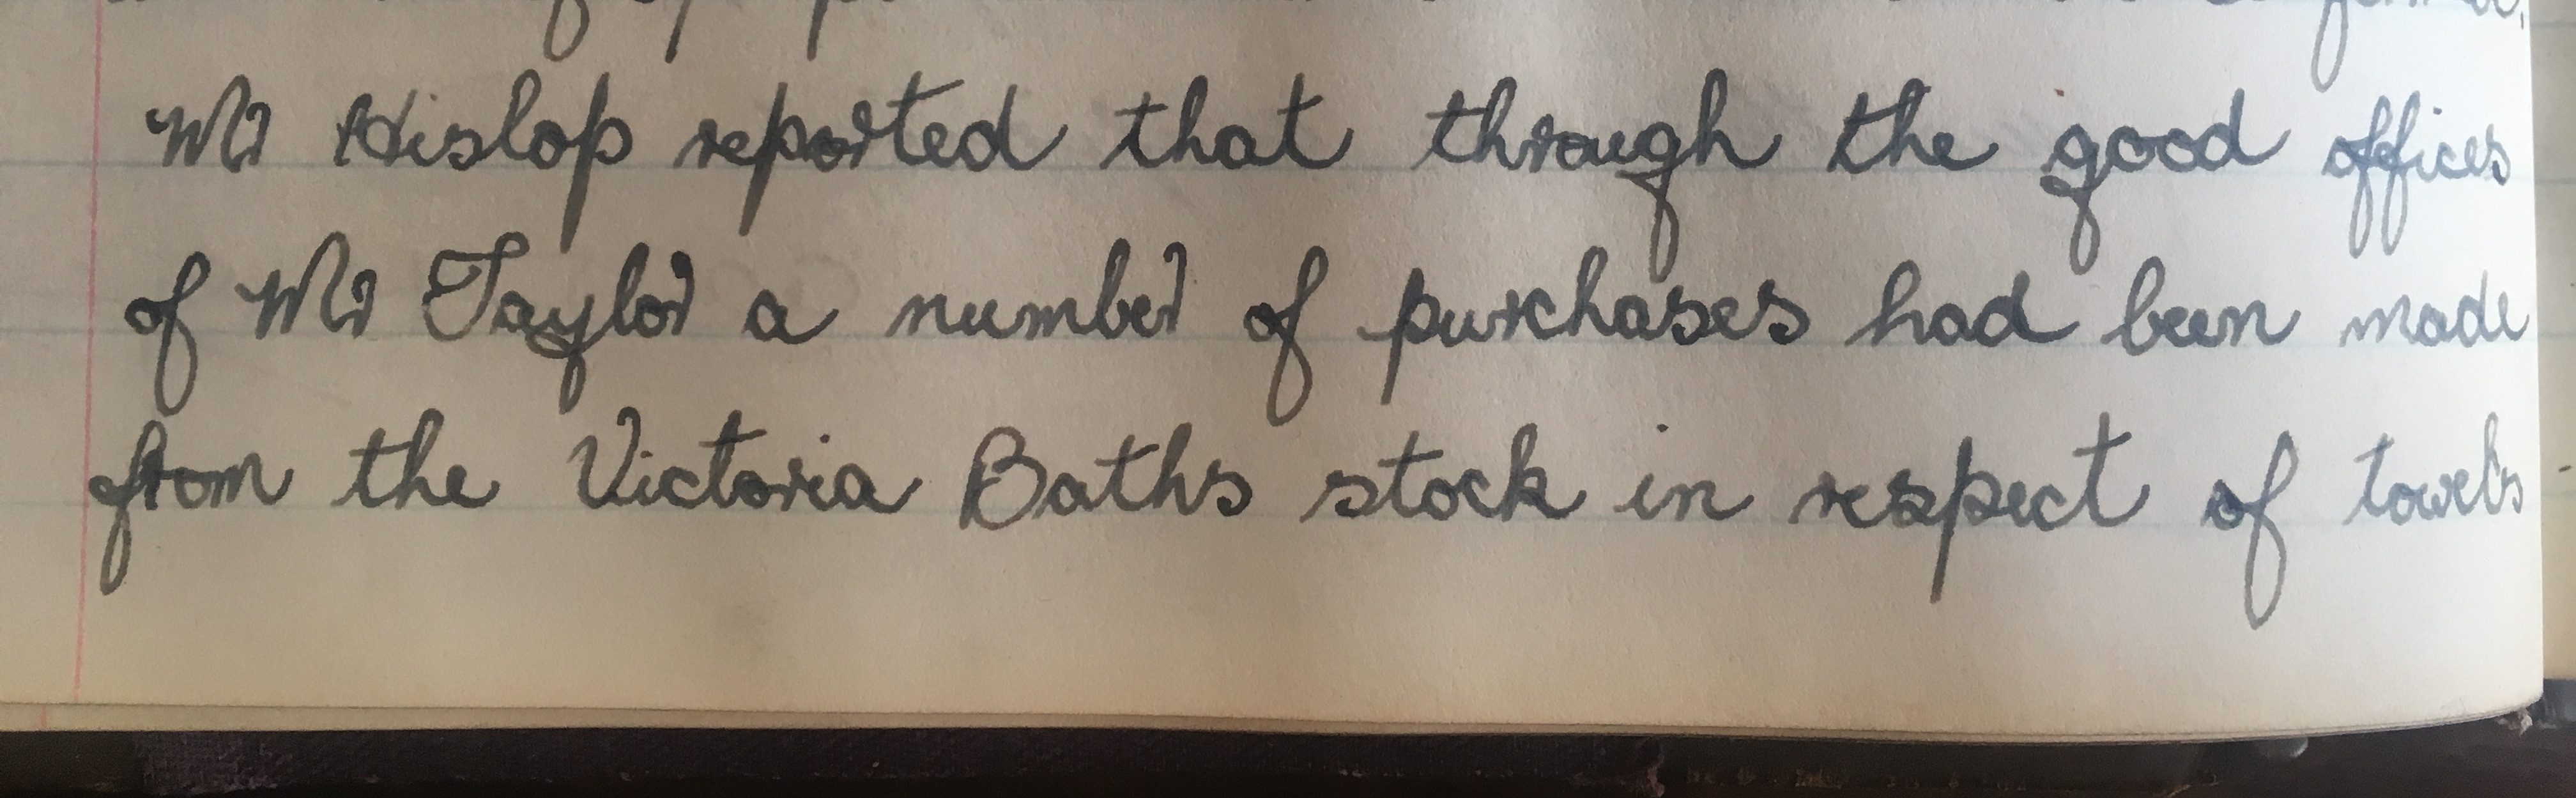 Mr Hislop reported that through the good offices
of Mr Taylor a number of purchases had been made
from the Victoria Baths stock in respect of towels